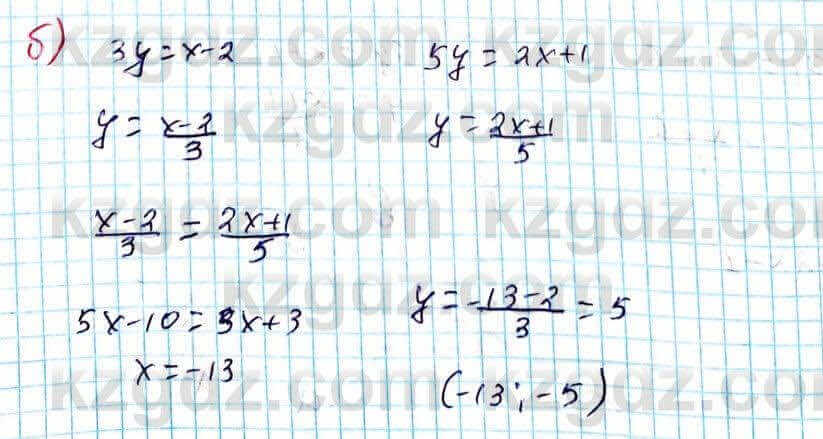 б) 3y = x-2 5y = 2x+1
y = (x-2)/3 y = (2x+1)/5
(x-2)/3 = (2x+1)/5
5x-10 = 3x+3 y = (-13-2)/3 = 5
x = -13 (-13; -5)
kzgdz.com